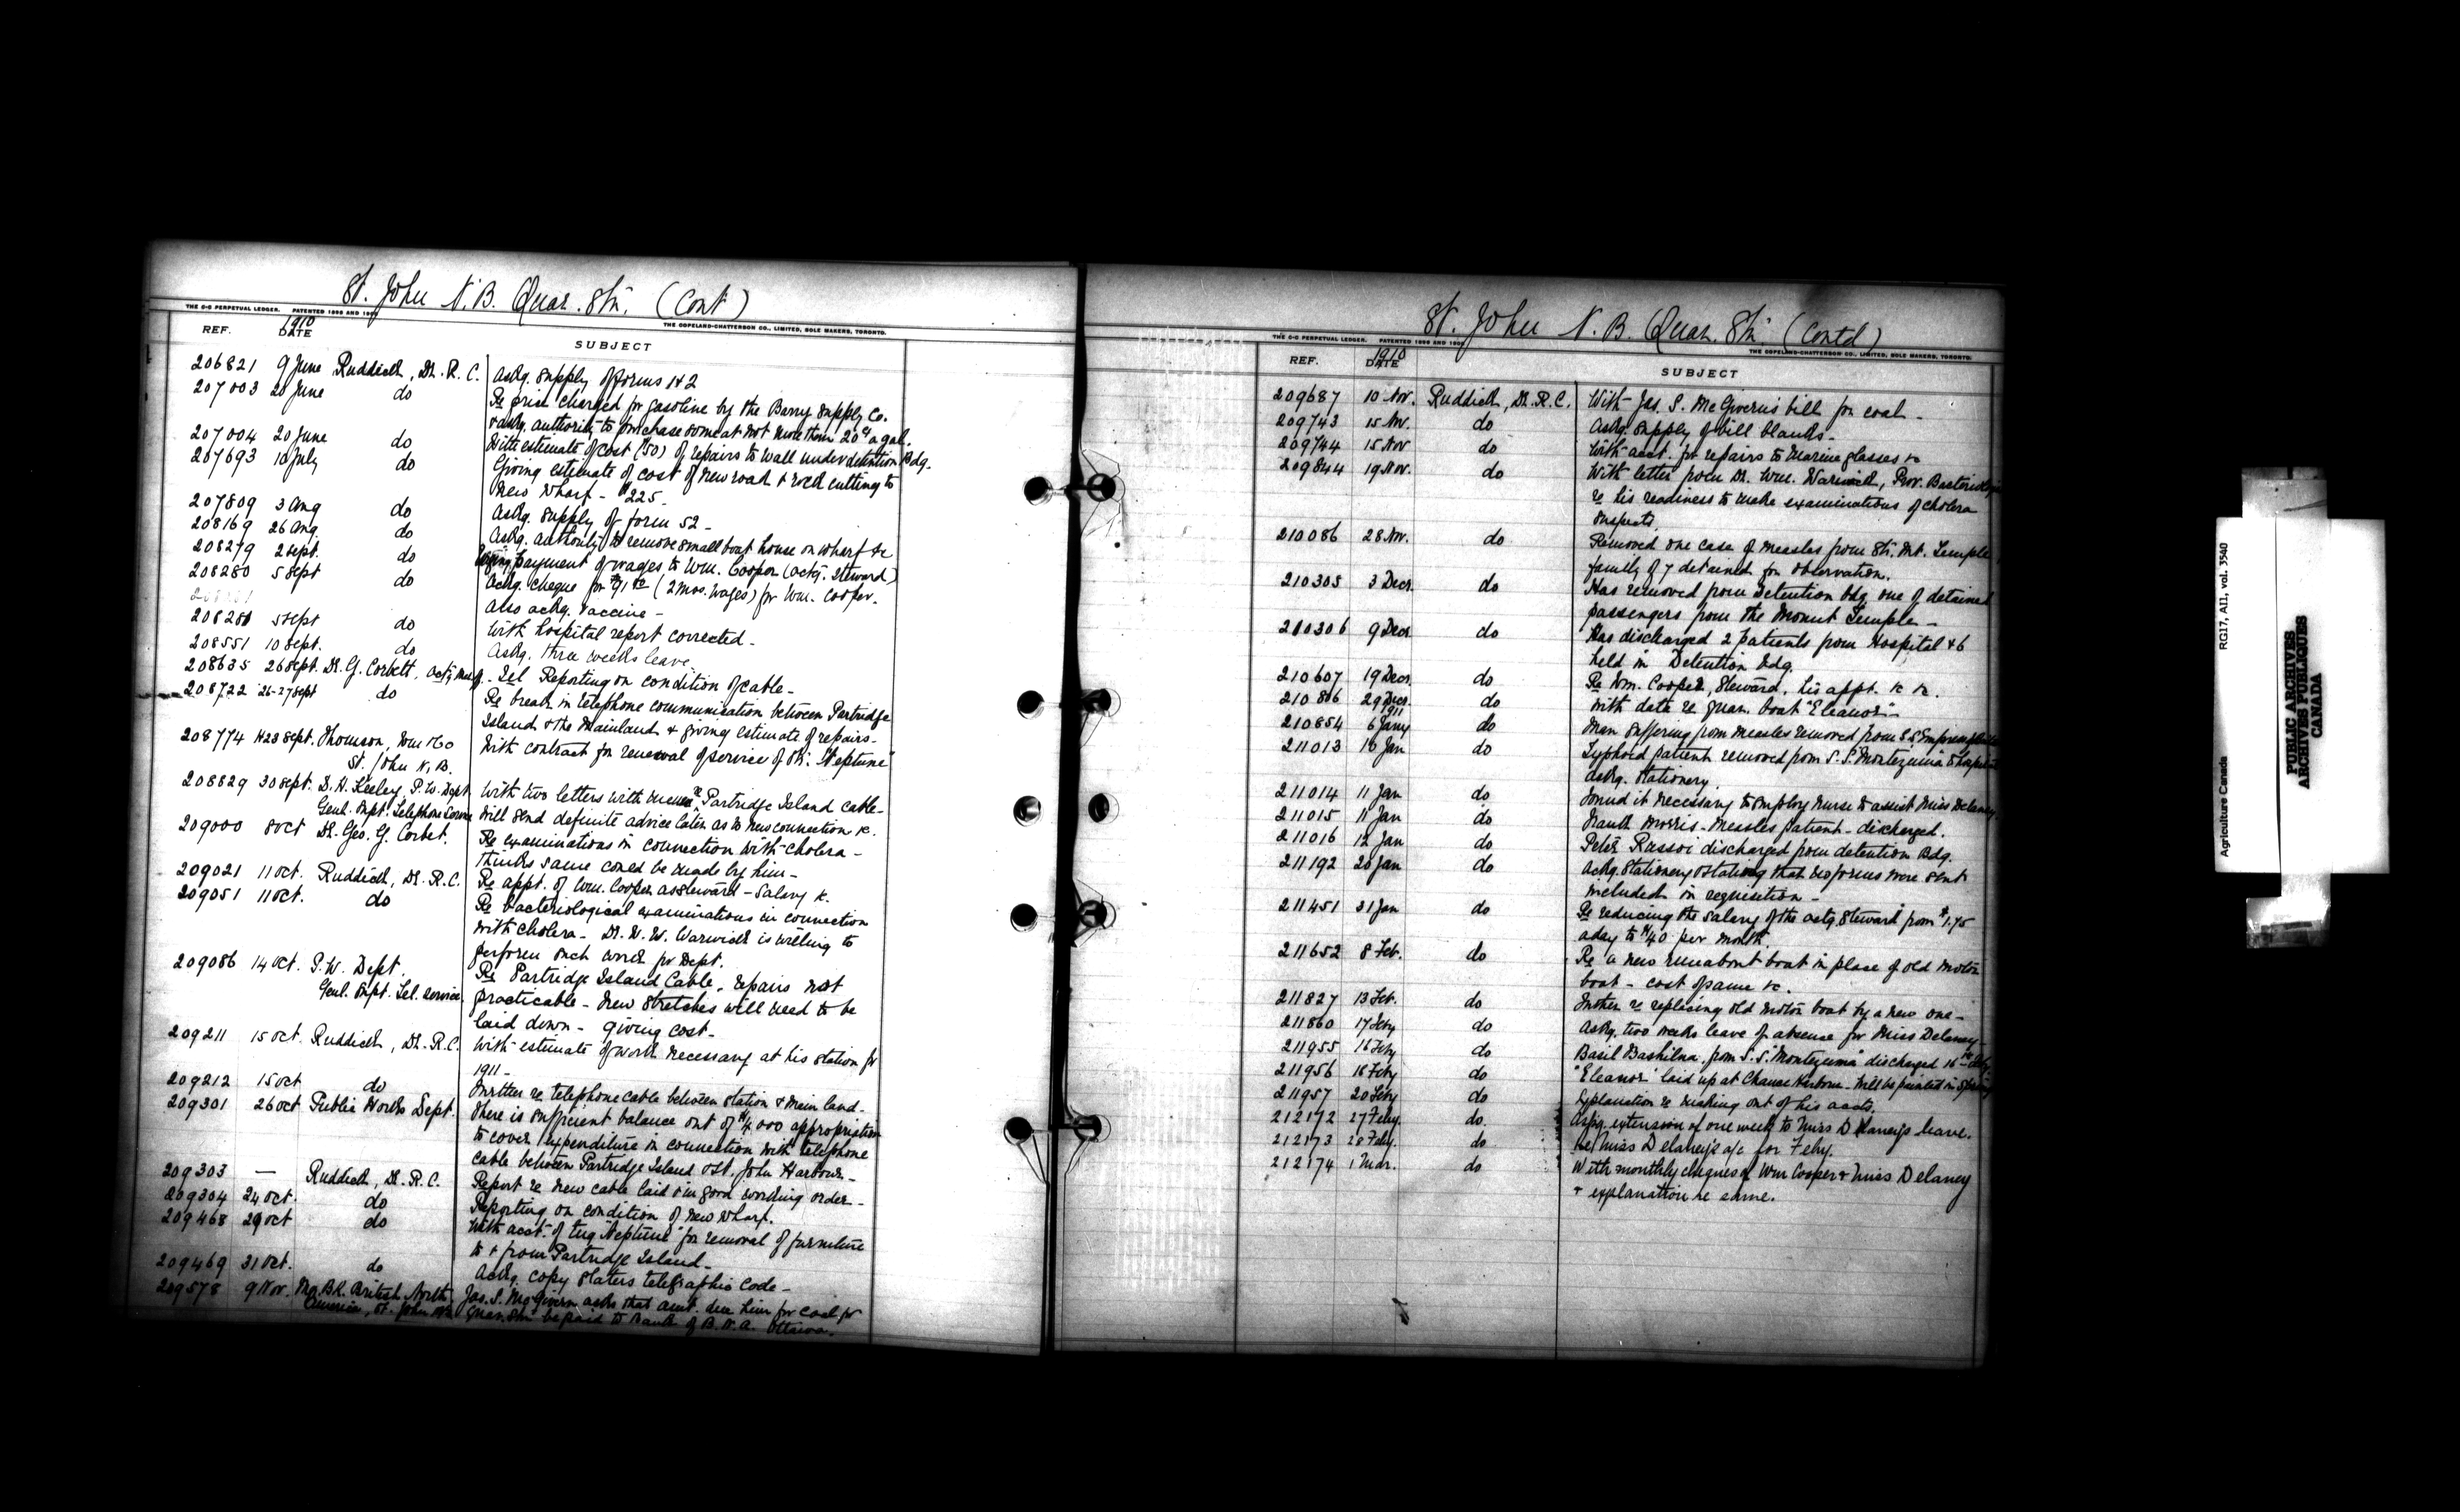 St. John N.B. Quar. Stn. (Cont)
THE C-C PERPETUAL LEDGER. PATENTED 1896 AND 190
THE COPELAND-CHATTERSON CO., LIMITED, SOLE MAKERS, TORONTO.
REF. 1910 DATE SUBJECT
206821 9 June Ruddick, Dr. R. C. Askg. supply of forms 1 & 2
207003 20 June do Re price charged for gasoline by the Barry Supply Co.
& askg. authority to purchase some at not more than 20cts a gal.
207004 20 June do With estimate of cost ($50) of repairs to wall under detention Bdg.
207693 10 July do Giving estimate of cost of new road & rock cutting to
new wharf - $225-
207809 3 Aug do Askg. supply of form 52-
208169 26 Aug. do Askg. authority to remove small boat house on wharf &c
208279 2 Sept. do Urging payment of wages to Wm. Cooper (actg. Steward)
208280 5 Sept do Askg. cheque for (2 mos. wages) for Wm. Cooper.
Also askg. vaccine -
208281 5 Sept do With hospital report corrected -
208551 10 Sept. do Askg. three weeks leave
208635 26 Sept. Dr. G. Corbett, Actg. Tel Reporting on condition of cable -
208722 26-27 Sept do Re break in telephone communication between Partridge
Island & the Mainland & giving estimate of repairs -
208774 23 Sept. Thomson, Wm & Co With contract for renewal of service of Str. "Neptune"
St. John N.B.
208829 30 Sept. D. H. Keeley, P.W. Dept. With two letters with re Partridge Island cable -
Genl. Supt. Telephone Service Will send definite advice later as to new connection &c.
209000 8 Oct Dr. Geo. G. Corbet. Re examinations in connection with cholera -
thinks same could be made by him -
209021 11 Oct. Ruddick, Dr. R.C. Re appt. of Wm. Cooper as Steward - Salary &c.
209051 11 Oct. do Re bacteriological examinations in connection
with cholera - Dr. W. W. Warwick is willing to
perform such work for Dept.
209086 14 Oct. P.W. Dept. Re Partridge Island Cable, repairs not
Genl. Supt. Tel. Service practicable - new stretches will need to be
laid down - giving cost -
209211 15 Oct. Ruddick, Dr. R.C. With estimate of work necessary at his station for
1911 -
209212 15 Oct do Further re telephone cable between station & main land -
209301 26 Oct Public Works Dept. There is sufficient balance out of $4,000 appropriation
to cover expenditure in connection with telephone
cable between Partridge Island & St. John Harbour -
209303 — Ruddick, Dr. R.C. Report re new cable laid & in good working order -
209304 24 Oct. do Reporting on condition of new wharf.
209468 29 Oct do With acct. of tug "Neptune" for removal of furniture
to & from Partridge Island -
209469 31 Oct. do Askg. copy Slaters telegraphic code -
209578 9 Nov. Bk. British North Jas. S. McGivern asks that amt. due him for coal for
America, St. John Quar. Stn be paid to Bank of B.N.A. Ottawa.
St. John N.B. Quar. Stn. (Contd)
THE C-C PERPETUAL LEDGER. PATENTED 1896 AND 190
THE COPELAND-CHATTERSON CO., LIMITED, SOLE MAKERS, TORONTO.
REF. 1910 DATE SUBJECT
209687 10 Nov. Ruddick, Dr. R.C. With Jas. S. McGivern's bill for coal -
209743 15 Nov. do Askg. supply of bill blanks -
209744 15 Nov do With acct. for repairs to Marine glasses &c
209844 19 Nov. do With letter from Dr. Wm. Warwick, Prov. Bacteriologist
re his readiness to make examinations of cholera
suspects.
210086 28 Nov. do Removed one case of measles from Str. Mt. Temple,
family of 7 detained for observation.
210305 3 Decr. do Has removed from Detention bdg one of detained
passengers from the Mount Temple -
210306 9 Decr do Has discharged 2 patients from Hospital & 6
held in Detention bdg.
210607 19 Decr. do Re Wm. Cooper, Steward, his appt. &c &c.
210806 29 Decr. do With date re quar. boat "Eleanor" -
1911
210854 6 Jany do Man suffering from measles removed from S.S. Empress
211013 10 Jan do Typhoid patient removed from S.S. "Montezuma" to hospital
askg. stationery.
211014 11 Jan do Found it necessary to employ nurse to assist Miss Delaney.
211015 11 Jan do Morris - Measles patient - discharged.
211016 12 Jan do Peter Russoi discharged from detention Bdg.
211192 20 Jan do Askg. stationery & stating that no forms were sent
included in requisition -
211451 31 Jan do Re reducing the salary of the actg. Steward from $1.75
a day to $40 per month.
211652 8 Feb. do Re a new runabout boat in place of old motor
boat - cost of same &c.
211827 13 Feb. do Further re replacing old motor boat by a new one -
211860 17 Feby do Askg. two weeks leave of absence for Miss Delaney -
211955 16 Feby do Basil Bashilna, from S.S. "Montezuma" discharged 16th Feby.
211956 18 Feby do "Eleanor" laid up at Chance Harbour - Will be painted in Spring
211957 20 Feby do Explanation re making out of his accts.
212172 27 Feby. do. Askg. extension of one week to Miss Delaney's leave.
212173 28 Feby. do Re Miss Delaney's a/c for Feby.
212174 1 Mar. do With monthly cheques of Wm Cooper & Miss Delaney
& explanation re same.
Agriculture Canada RG17, AII, vol. 3540
PUBLIC ARCHIVES
ARCHIVES PUBLIQUES
CANADA